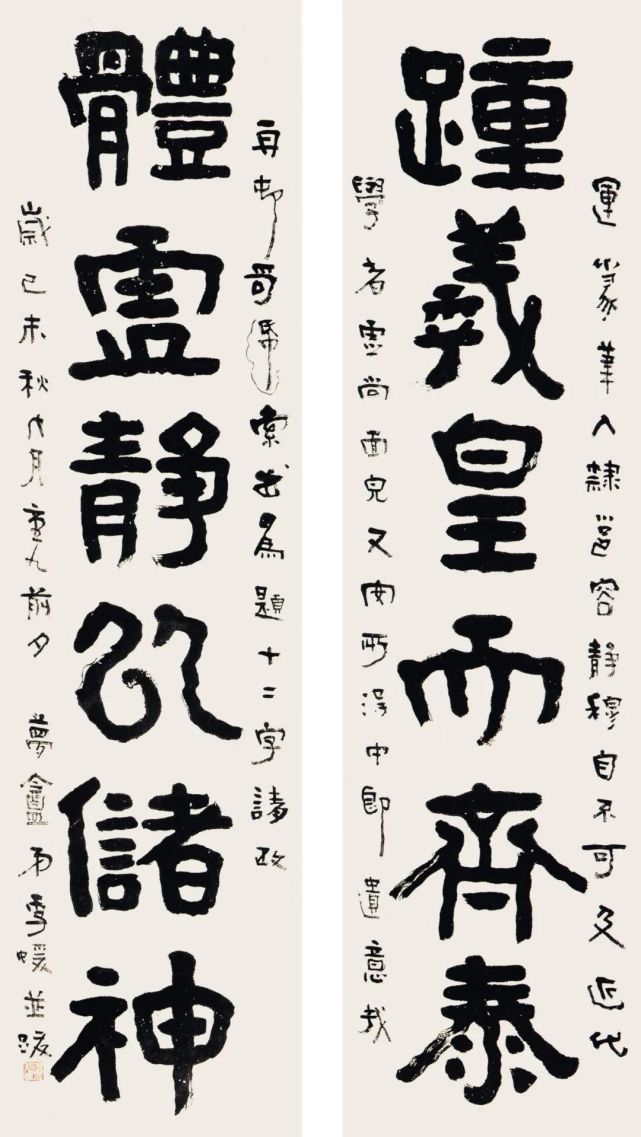 運篆筆入隸邕容靜穆自不可及近代
踵羲皇而齊泰
學者虛尚面皃又安所得中郎遺意哉
舟邨哥 索書為題十二字諸政
體虛靜以儲神
歲己未秋九月重九前夕 夢盦弟季瑗並跋